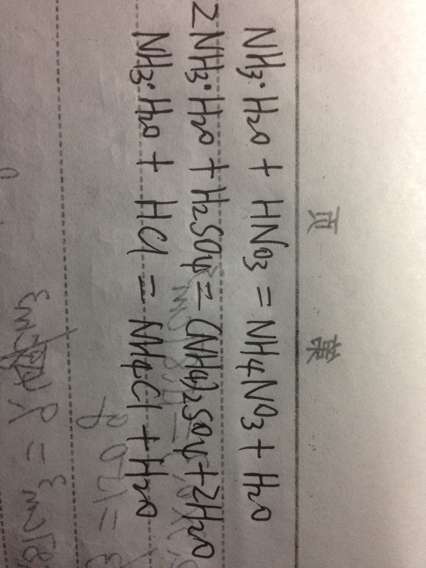 NH3·H2O + HNO3 = NH4NO3 + H2O
2NH3·H2O + H2SO4 = (NH4)2SO4 + 2H2O
NH3·H2O + HCl = NH4Cl + H2O